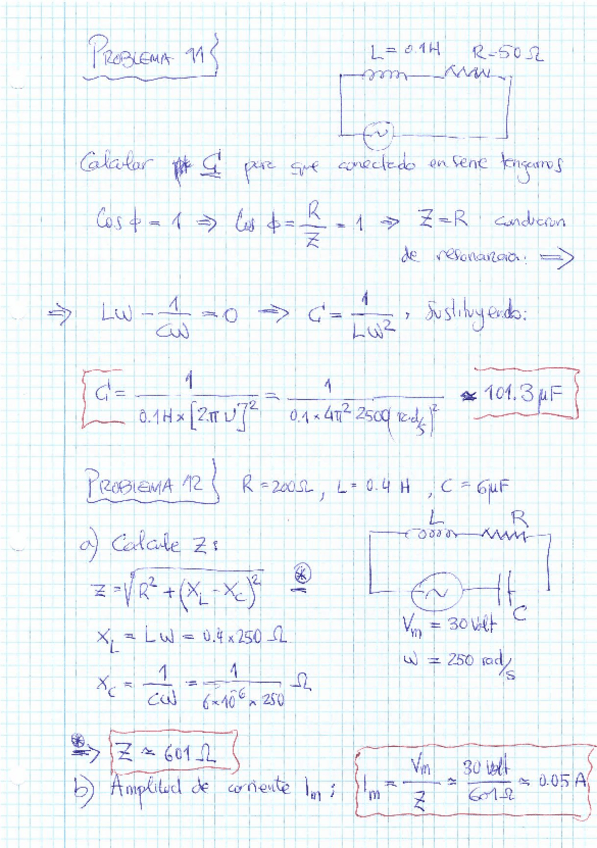 PROBLEMA 11
L = 0.1H R=50Ω
Calcular C para que conectado en serie tengamos
Cos ϕ = 1 ⇒ Cos ϕ = R/Z = 1 ⇒ Z=R condición
de resonancia: ⇒
⇒ Lω - 1/Cω = 0 ⇒ C = 1/Lω², Sustituyendo:
C = 1/(0.1H×[2π ν]²) = 1/(0.1×4π² 2500(rad/s)²) ≈ 101.3 μF
PROBLEMA 12 R = 200Ω, L = 0.4 H, C = 6μF
L R
a) Calcule Z:
Z = √(R² + (X_L - X_C)²) ⊛
C
V_m = 30 Volt
X_L = Lω = 0.4×250 Ω
ω = 250 rad/s
X_C = 1/Cω = 1/(6×10⁻⁶ × 250) Ω
⊛⇒ Z ≈ 601 Ω
b) Amplitud de corriente I_m: I_m = V_m/Z ≈ 30 Volt/601Ω ≈ 0.05 A